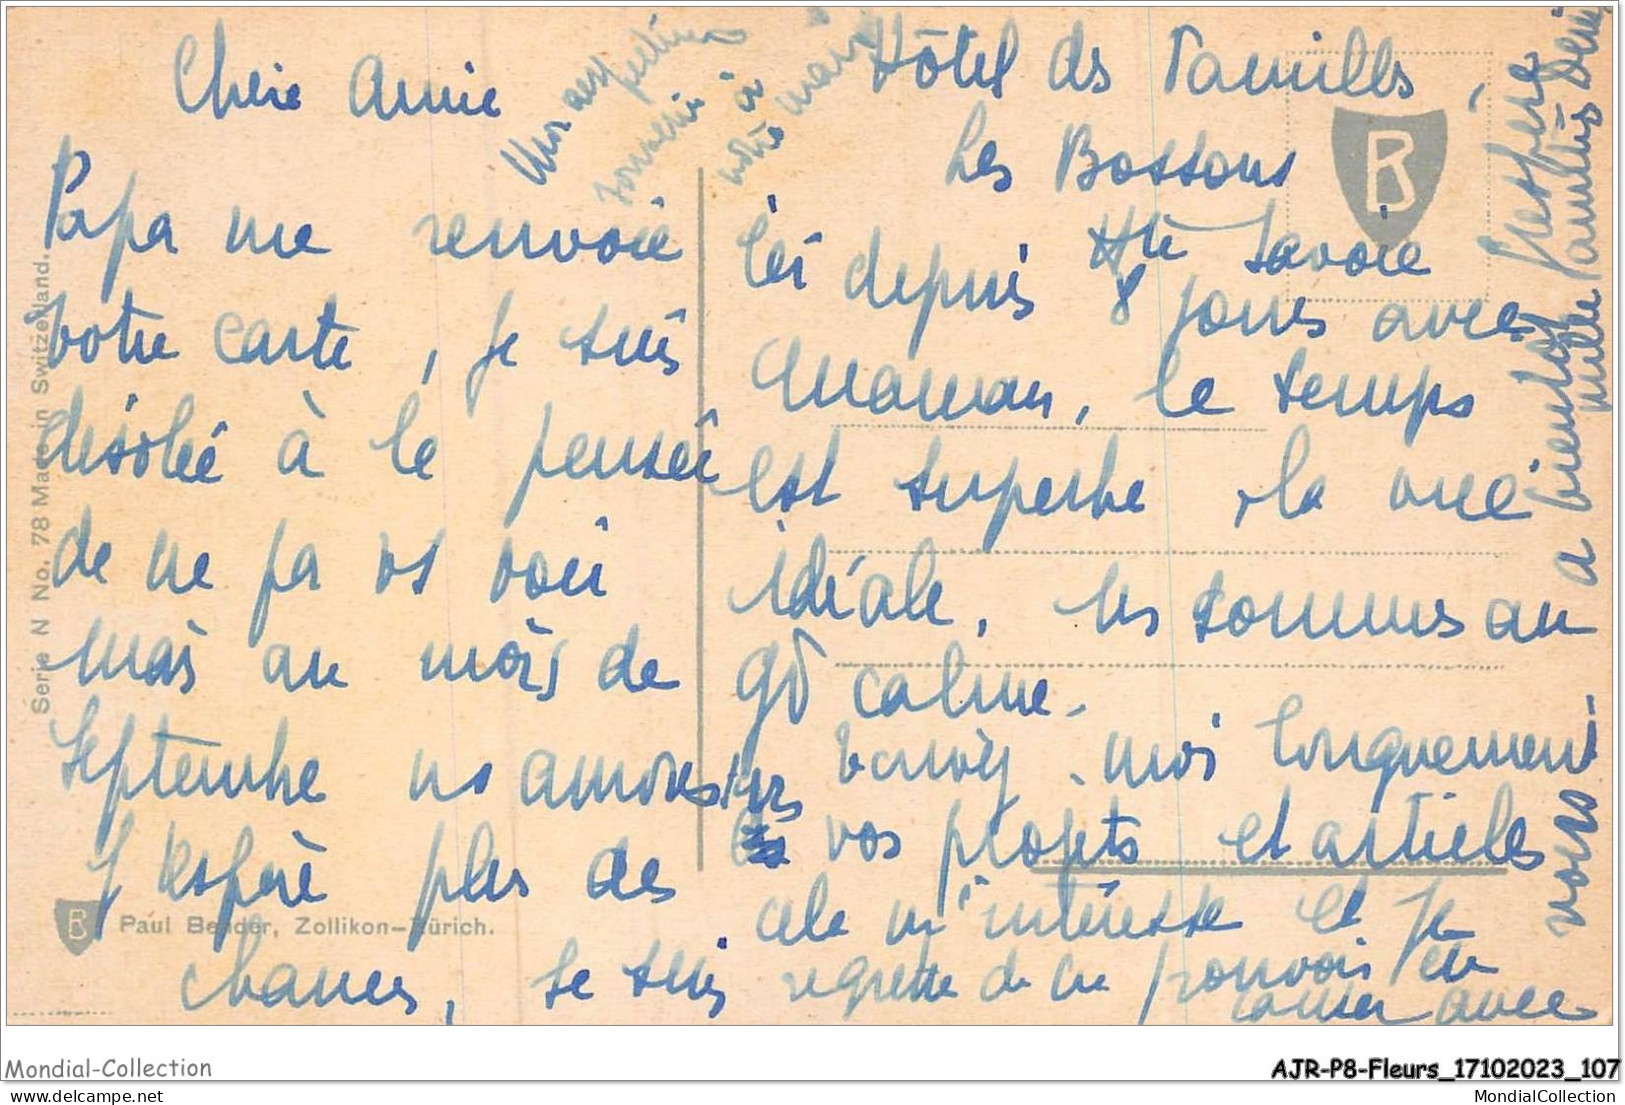 Chère Amie
Papa me renvoie
votre carte, je suis
désolée à la pensée
de ne pas vs voir
mais au mois de
Septembre ns aurons
j'espère plus de
chances, je suis
Mon
souvenir à
votre mari
Hôtel des Familles,
Les Bossons
Hte Savoie
ici depuis 8 jours avec
maman, le temps
est superbe, la vue
idéale, ns sommes au
gd calme.
Ecrivez-moi longuement
vos projets et articles
cela m'intéresse et je
regrette de ne pouvoir en
causer avec
vous
a bientôt j'espère
mille
R
Serie N No. 78 Made in Switzerland.
B Paul Bender, Zollikon-Zürich.
Mondial-Collection
AJR-P8-Fleurs_17102023_107
MondialCollection